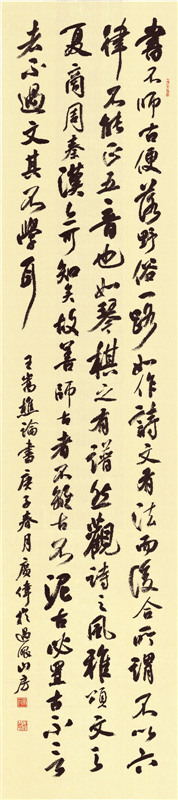 書不師古便落野俗一路如作詩文有法而後合所謂不以六
律不能正五音也如琴棋之有譜然觀詩之風雅頌文之
夏商周秦漢亦可知矣故善師古者不離古不泥古必置古不言
者不過文其不學耳
王嵩樵論書庚子春月廣偉於過眼山房